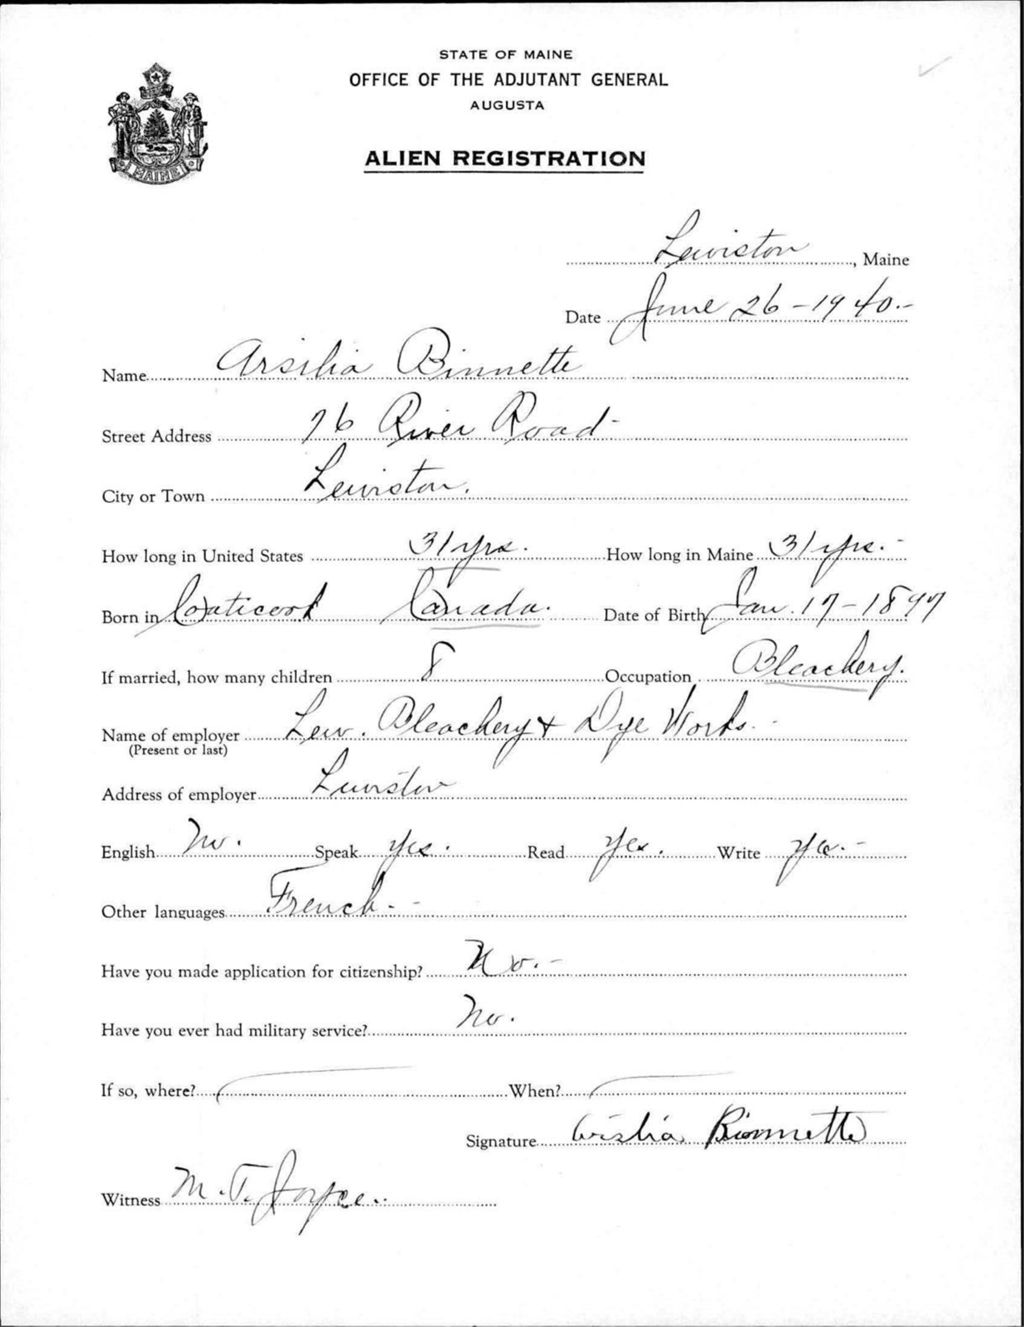 STATE OF MAINE
OFFICE OF THE ADJUTANT GENERAL
AUGUSTA
ALIEN REGISTRATION
MAINE
Lewiston, Maine
Date June 26-1940.-
Name Arsilia Binnette
Street Address 76 River Road-
City or Town Lewiston.
How long in United States 31 yrs. How long in Maine 31 yrs.-
Born in Coaticook Canada. Date of Birth Jan. 17-1897
If married, how many children 8 Occupation Bleachery.
Name of employer Lew. Bleachery & Dye Works.-
(Present or last)
Address of employer Lewiston
English No. Speak yes. Read Yes. Write yes.-
Other languages French.-
Have you made application for citizenship? No.-
Have you ever had military service? No.
If so, where? When?
Signature Binnette
Witness M.T. Joyce.